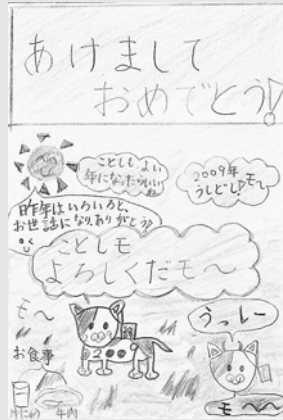 あけまして
おめでとう!
ことしもよい
年になったらいいね
2009年
うしどし!モ〜
昨年はいろいろと、
お世話になり、ありがとう!
ことしモ
よろしくだモ〜
モ〜
うっしー
お食事
牛肉
モ〜